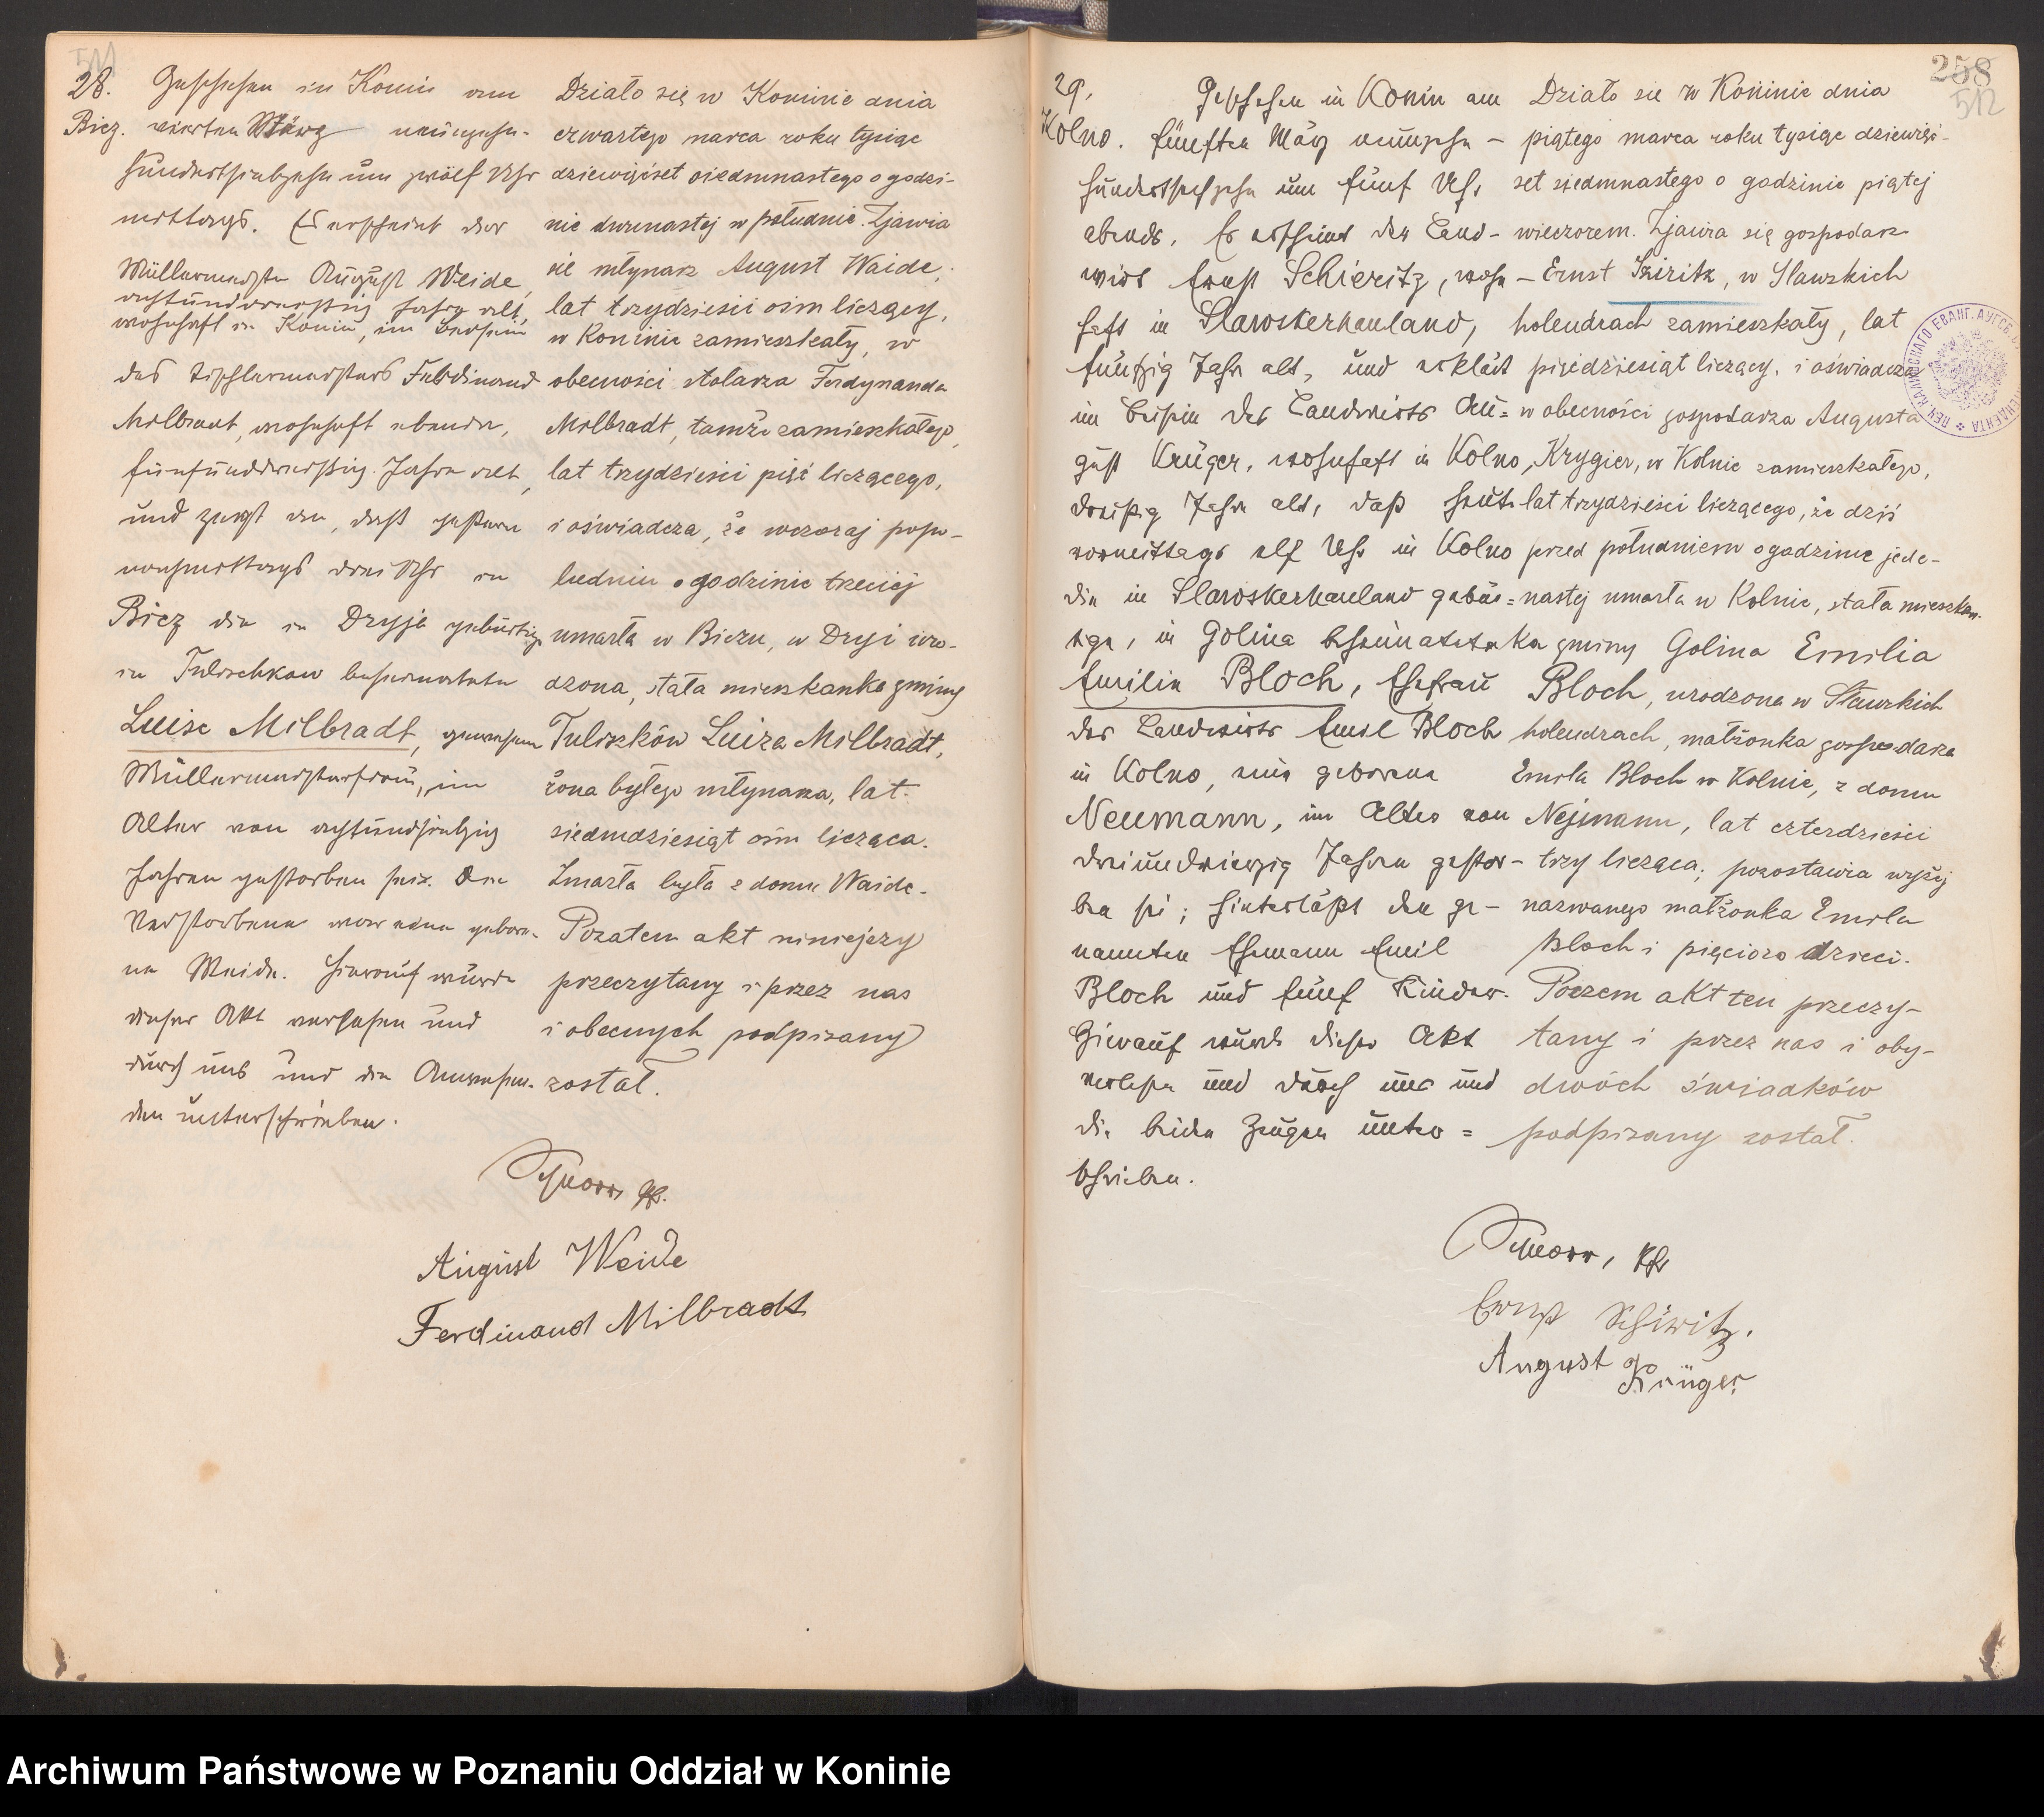 511
28.
Biez.
Geschehen in Konin am
vierten März neunzehn-
hundertsiebzehn um zwölf Uhr
mittags. Es erscheint der
Müllermeister August Weide,
achtunddreißig Jahre alt,
wohnhaft in Konin, im Beisein
des Tischlermeisters Ferdinand
Milbradt, wohnhaft ebenda,
fünfunddreißig Jahre alt,
und zeigt an, daß gestern
nachmittags drei Uhr in
Biez die in Dryja gebürtige
in Tulischkow beheimatete
Luise Milbradt, gewesene
Müllermeisterfrau, im
Alter von achtundsiebzig
Jahren gestorben sei. Die
Verstorbene war eine gebore-
ne Weide. Hierauf wurde
dieser Akt verlesen und
durch uns und die Anwesen-
den unterschrieben.
Działo się w Koninie dnia
czwartego marca roku tysiąc
dziewięićset siedmnastego o godzi-
nie dwunastej w południe. Zjawia
się młynarz August Waide,
lat trzydzieści ośm liczący,
w Koninie zamieszkały, w
obecności stolarza Ferdynanda
Milbradt, tamże zamieszkałego,
lat trzydzieści pięć liczącego,
i oświadcza, że wczoraj popo-
łudniu o godzinie trzeciej
umarła w Biezu, w Dryi uro-
dzona, stała mieszkanka gminy
Tuliszków Luiza Milbradt,
żona byłego młynarza, lat
siedmdziesiąt ośm licząca.
Zmarła była z domu Waide.
Pozatem akt niniejszy
przeczytany i przez nas
i obecnych podpisany
został.
August Weide
Ferdinand Milbradt
258
512
29.
Kolno.
Geschehen in Konin am
fünften März neunzehn-
hundertsechzehn um fünf Uhr
abends. Es erscheint der Land-
wirt Ernst Schieritz, wohn-
haft in Slawskerhauland,
fünfzig Jahre alt, und erklärt
im Beisein des Landwirts Au=
gust Krüger, wohnhaft in Kolno,
dreißig Jahre alt, daß heute
vormittags elf Uhr in Kolno
die in Slawskerhauland gebür=
tige, in Golina beheimatete
Emilie Bloch, Ehefrau
des Landwirts Emil Bloch
in Kolno, eine geborene
Neumann, im Alter von
dreiundvierzig Jahren gestor-
ben sei; hinterläßt den ge-
nannten Ehemann Emil
Bloch und fünf Kinder.
Hierauf wurde dieser Akt
verlesen und durch uns und
die beiden Zeugen unter=
schrieben.
Działo się w Koninie dnia
piątego marca roku tysiąc dziewięć-
set siedmnastego o godzinie piątej
wieczorem. Zjawia się gospodarz
Ernst Sziritz, w Sławskich
holendrach zamieszkały, lat
pięćdziesiąt liczący, i oświadcza
w obecności gospodarza Augusta
Krygier, w Kolnie zamieszkałego,
lat trzydzieści liczącego, że dziś
przed południem o godzinie jede-
nastej umarła w Kolnie, stała mieszkan-
ka gminy Golina Emilia
Bloch, urodzona w Sławskich
holendrach, małżonka gospodarza
Emila Bloch w Kolnie, z domu
Nejmann, lat czterdzieści
trzy licząca; pozostawia wyżej
nazwanego małżonka Emila
Bloch i pięcioro dzieci.
Poczem akt ten przeczy-
tany i przez nas i oby-
dwóch świadków
podpisany został.
Ernst Schieritz.
August Krüger
Archiwum Państwowe w Poznaniu Oddział w Koninie